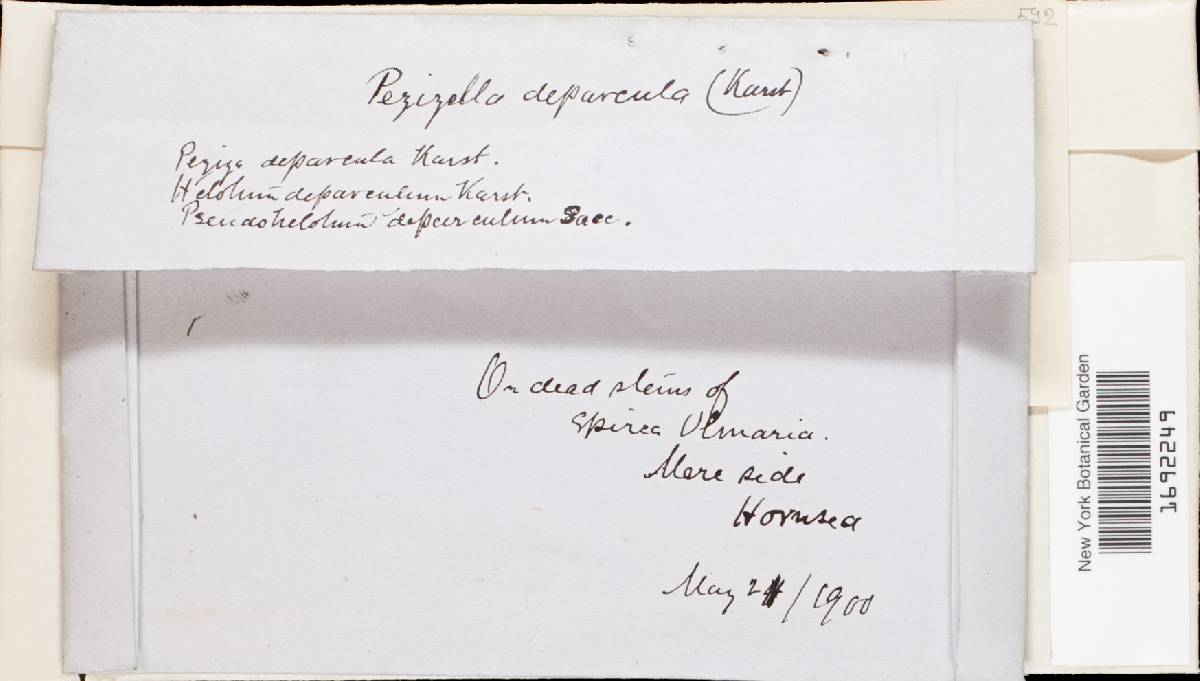 592
Pezizella deparcula (Karst)
Peziza deparcula Karst.
Helotium deparculum Karst.
Pseudohelotium deparculum Sacc.
On dead stems of
Spirea Ulmaria.
Mere side
Hornsea
May 24/1900
New York Botanical Garden
1692249